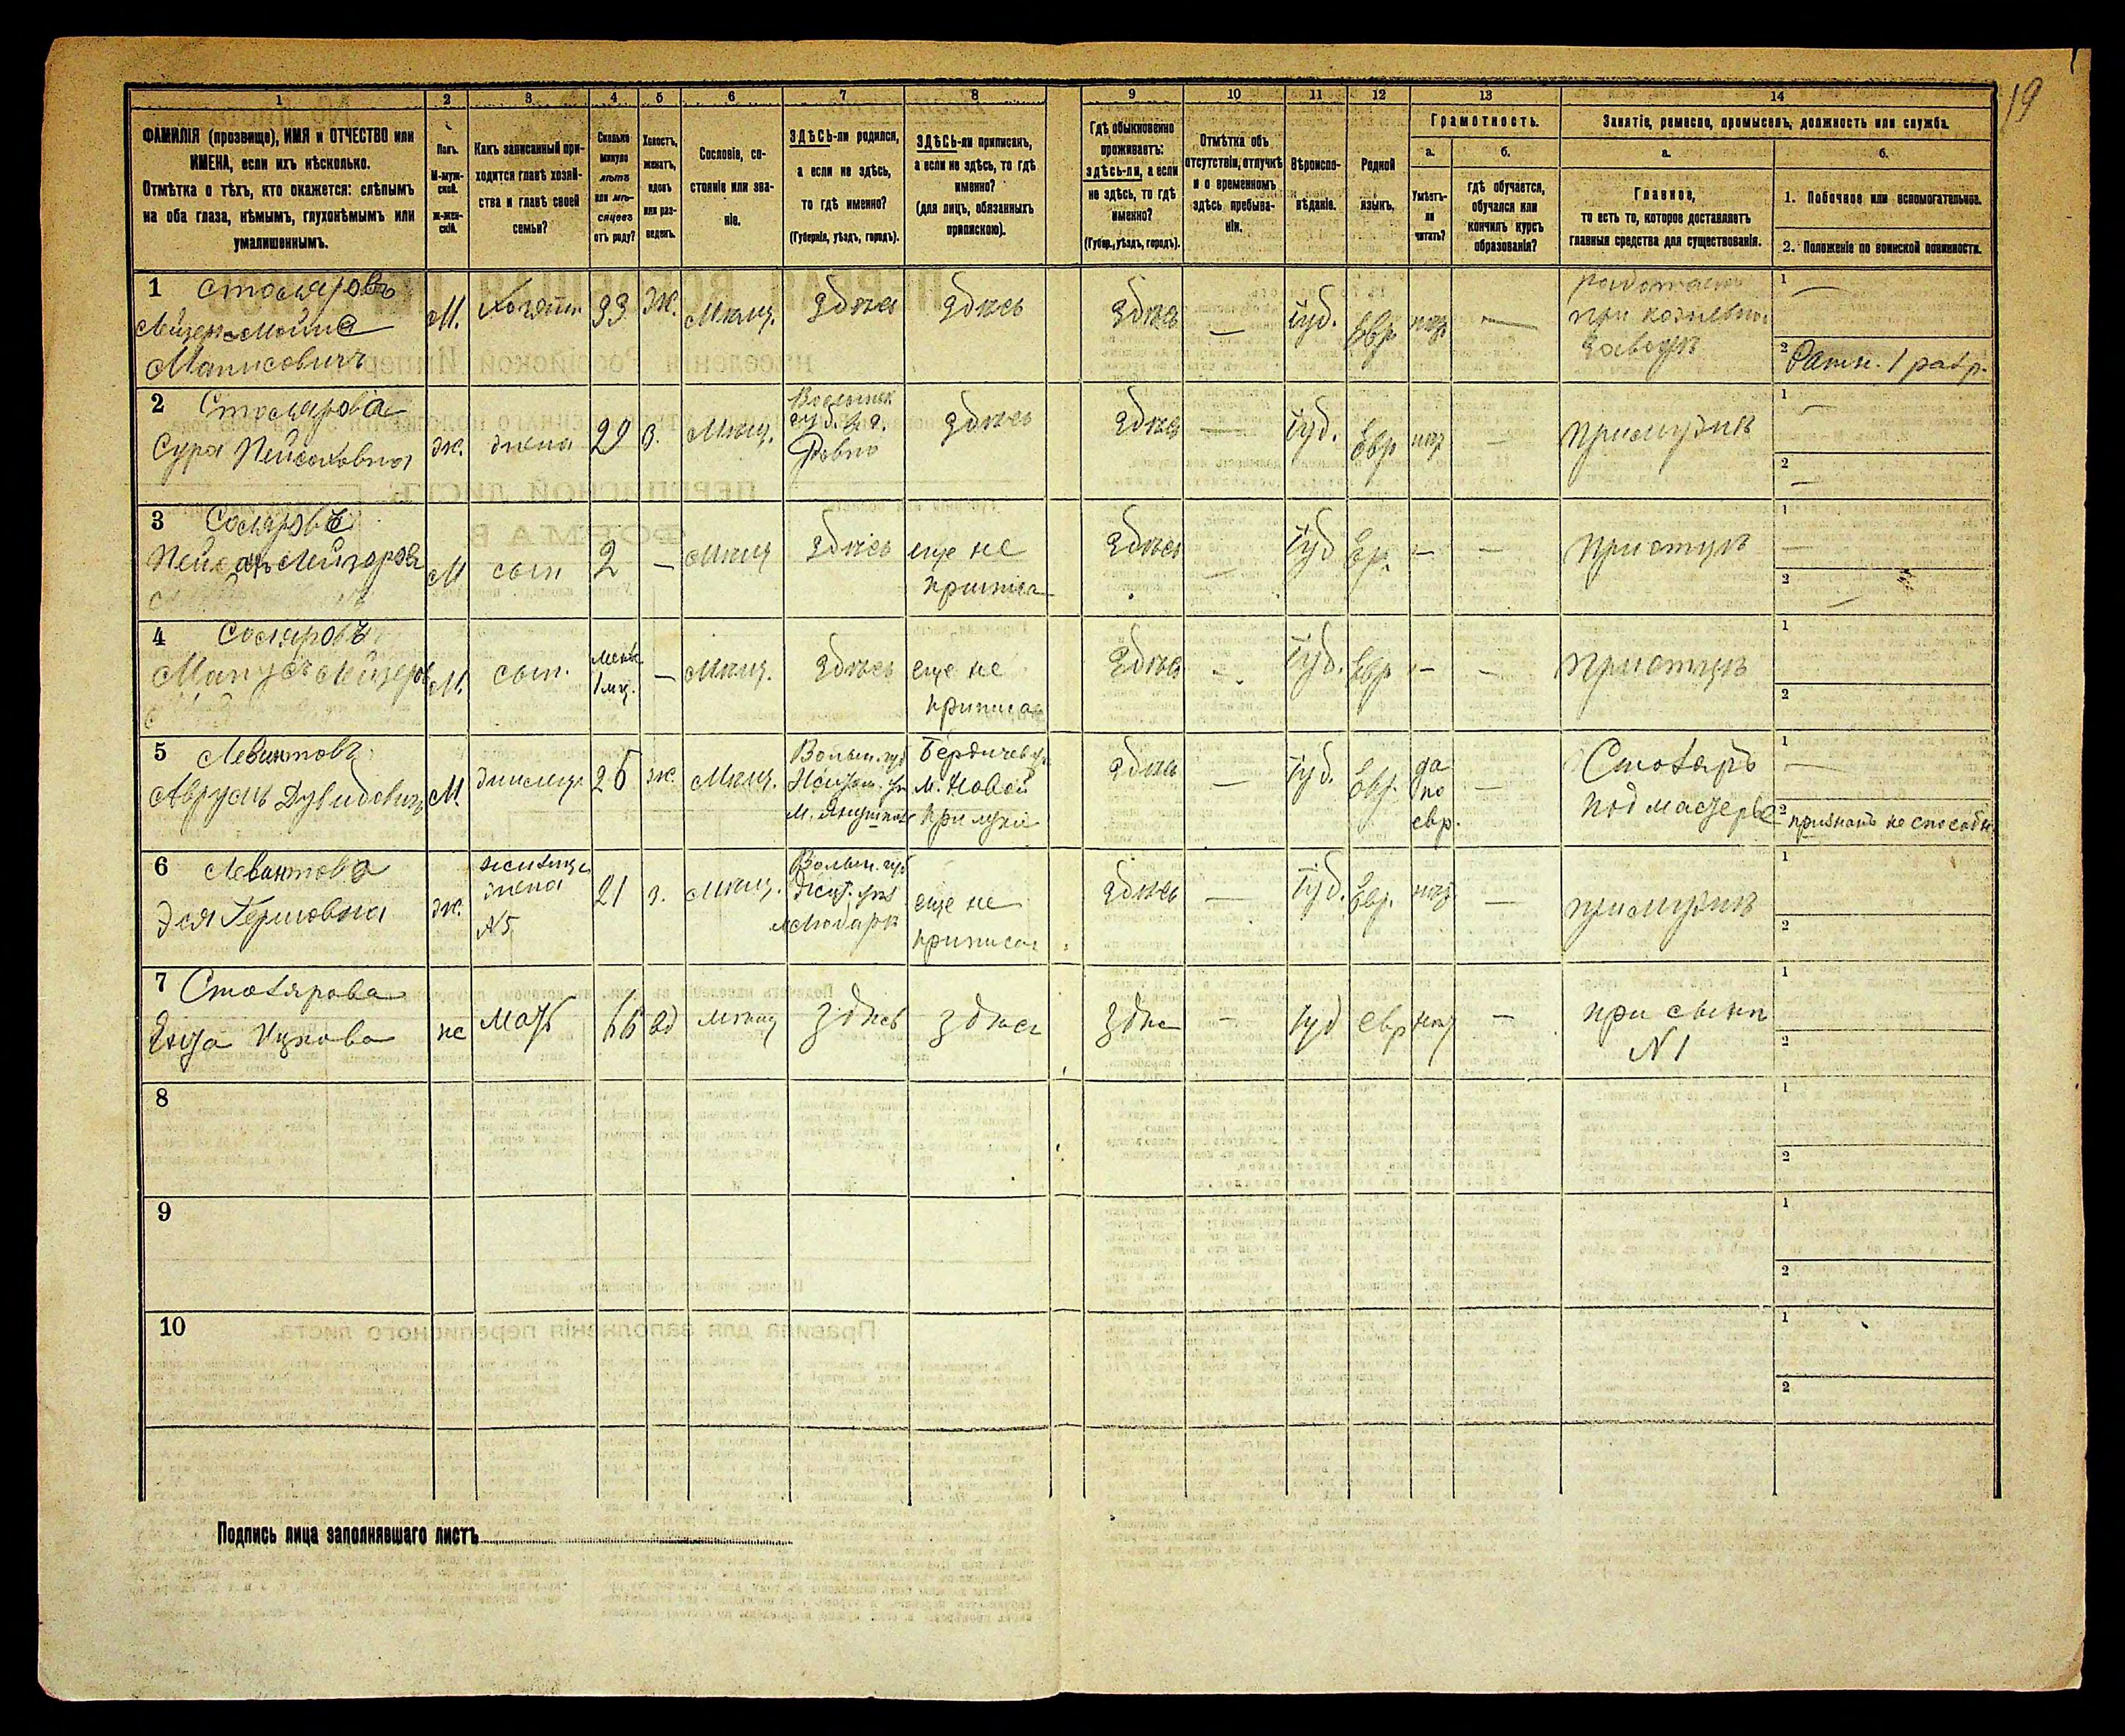 19
1 2 3 4 5 6 7 8 9 10 11 12 13 14
ФАМИЛІЯ (прозвище), ИМЯ и ОТЧЕСТВО или
ИМЕНА, если ихъ нѣсколько.
Отмѣтка о тѣхъ, кто окажется: слѣпымъ
на оба глаза, нѣмымъ, глухонѣмымъ или
умалишеннымъ.
Полъ.
М-муж-
ской.
ж-жен-
скій.
Какъ записанный при-
ходится главѣ хозяй-
ства и главѣ своей
семьи?
Сколько
минуло
лѣтъ
или мѣ-
сяцевъ
отъ роду?
Холостъ,
женатъ,
вдовъ
или раз-
веденъ.
Сословіе, со-
стояніе или зва-
ніе.
ЗДѢСЬ-ли родился,
а если не здѣсь,
то гдѣ именно?
(Губернія, уѣздъ, городъ).
ЗДѢСЬ-ли приписанъ,
а если не здѣсь, то гдѣ
именно?
(для лицъ, обязанныхъ
припискою).
Гдѣ обыкновенно
проживаетъ:
здѣсь-ли, а если
не здѣсь, то гдѣ
именно?
(Губер., уѣздъ, городъ).
Отмѣтка объ
отсутствіи, отлучкѣ
и о временномъ
здѣсь пребыва-
ніи.
Вѣроиспо-
вѣданіе.
Родной
языкъ.
Грамотность.
а.
Умѣетъ-
ли
читать?
б.
гдѣ обучается,
обучался или
кончилъ курсъ
образованія?
Занятіе, ремесло, промыселъ, должность или служба.
а.
Главное,
то есть то, которое доставляетъ
главныя средства для существованія.
б.
1. Побочное или вспомогательное.
2. Положеніе по воинской повинности.
1 Столяровъ
Лейзеръ-Мойше
Манисовичъ
М. Хозяинъ 33 ж. Мѣщ. здѣсь здѣсь здѣсь — Іуд. Евр. —
при
заводѣ
1 —
2 Ратн. 1 разр.
2 Столярова
Сура Пейсаховна
ж. жена 29 з. Мѣщ.
Волынск
губ.
Ровно
здѣсь здѣсь — Іуд. Евр — при мужѣ
1 —
2 —
3
М сын 2 — мѣщ здѣсь
еще не
приписа
здѣсь — Іуд Евр. — — при отцѣ
1 —
2 —
4
М. сын.
1 мѣ.
— Мѣщ. здѣсь
еще не
приписа
здѣсь — Іуд. Евр — — при отцѣ
1
2
5 Левинтовъ
Аврумъ Дувидовичъ
М. жилец. 26 ж. Мѣщ.
Волын. губ
м. Янушполь
Бердичев у.
м. Новой
Прилуки
здѣсь — Іуд. Евр.
да
по
евр.
—
Столяръ
подмастерье
1 —
2 признанъ не способн.
6 Левинтова
Эся Гершовна
ж.
жильца
жена
№5
21 з. мѣщ.
Волын. губ
Жит. уѣз
еще не
приписа
здѣсь — Іуд. Евр. — при мужѣ
1
2
7 Столярова
Ицкова
же мать 66 вд мѣщ здѣсь здѣсь здѣс — Іуд евр —
при сынѣ
№ 1
1
2
8
1
2
9
1
2
10
1
2
Подпись лица заполнявшаго листъ